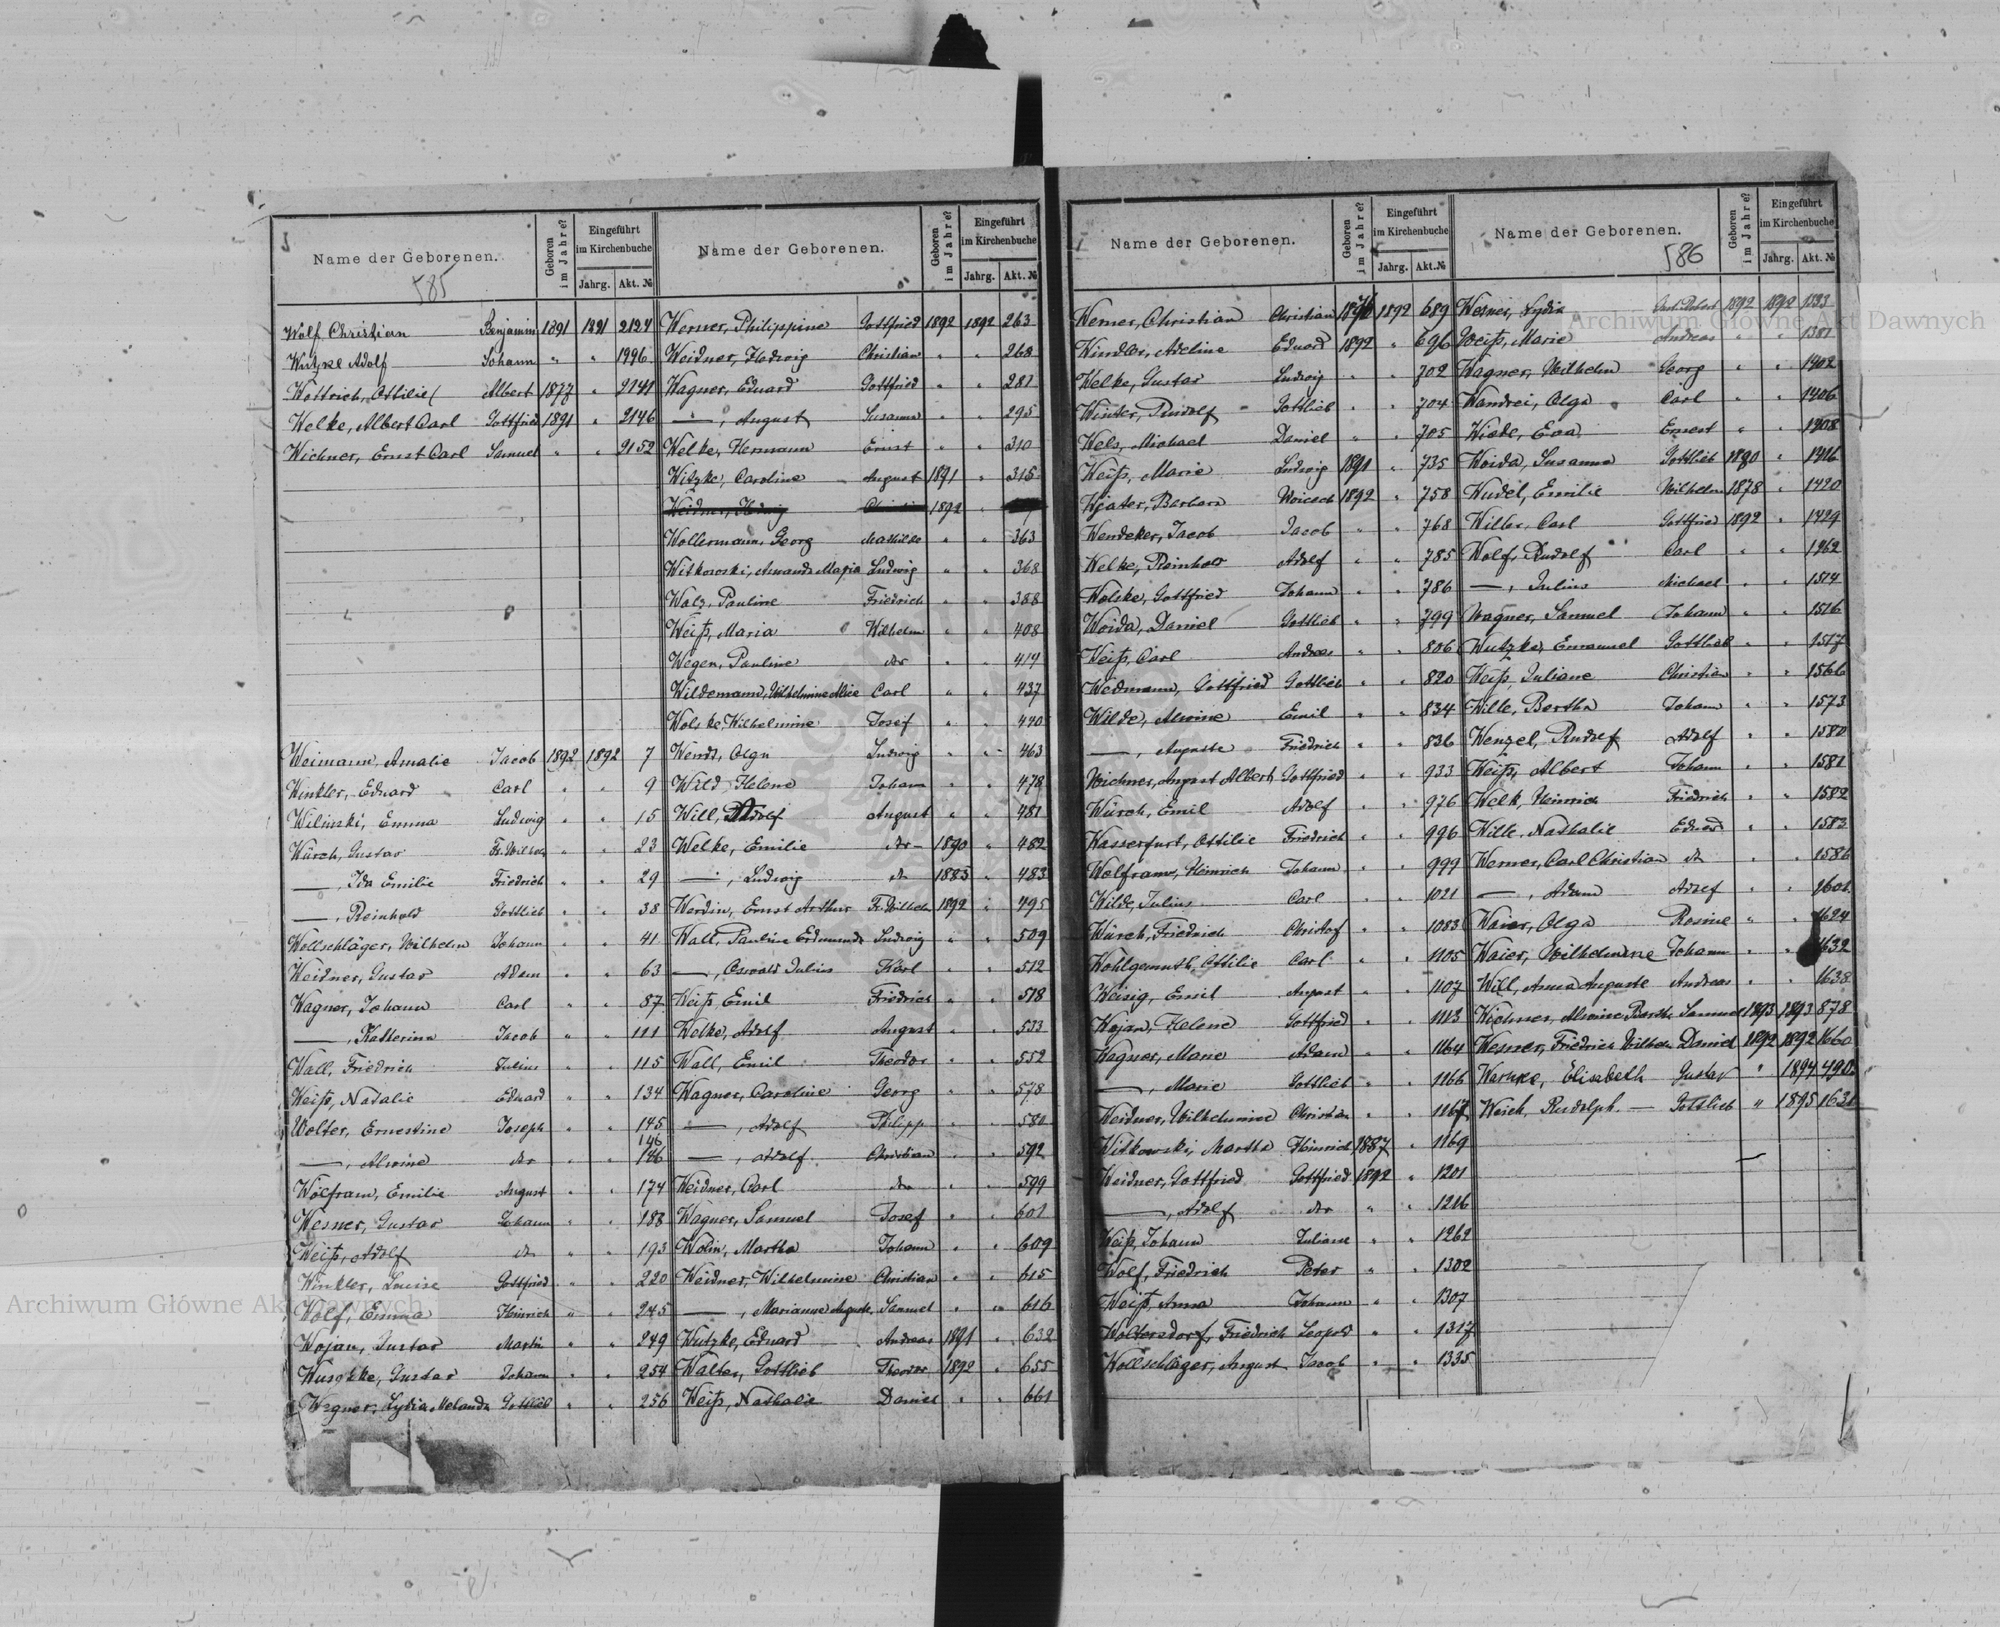 Name der Geborenen.
585
Geboren im Jahre?
Eingeführt im Kirchenbuche
Jahrg. Akt. №
Wolf, Christian Benjamin 1891 1891 2124
Wutzke Adolf Johann " " 1996
Wottrich, Ottilie Albert 1877 " 2141
Welke, Albert Carl Gottfried 1891 " 2146
Wichner, Ernst Carl Samuel " " 2152
Weimann, Amalie Jacob 1892 1892 7
Winkler, Eduard Carl " " 9
Wilinski, Emma Ludwig " " 15
Würch, Gustav Fr. Wilhelm " " 23
—, Ida Emilie Friedrich " " 29
—, Reinhold Gottlieb " " 38
Wollschläger, Wilhelm Johann " " 41
Weidner, Gustav Adam " " 63
Wagner, Johann Carl " " 87
—, Katherina Jacob " " 111
Wall, Friedrich Julius " " 115
Weiß, Natalie Eduard " " 134
Wolter, Ernestine Joseph " " 145
—, Alwine dto " " 146 146
Wolfram, Emilie August " " 174
Wesner, Gustav Johann " " 188
Weiß, Adolf dto " " 193
Winkler, Louise Gottfried " " 220
Wolf, Emma Heinrich " " 245
Wojan, Gustav Martin " " 249
Gustav Johann " " 254
Wegner, Lydia Melanda Gottlieb " " 256
Name der Geborenen.
Geboren im Jahre?
Eingeführt im Kirchenbuche
Jahrg. Akt. №
Werner, Philippine Gottfried 1892 1892 263
Weidner, Hedwig Christian " " 268
Wagner, Eduard Gottfried " " 281
—, August Susanna " " 295
Welke, Hermann Ernst " " 310
Witzke, Caroline August 1891 " 315
Weidner, Hedwig Christian 1892 "
Wollermann, Georg Mathilde " " 363
Witkowski, Amanda Maria Ludwig " " 368
Walz, Pauline Friedrich " " 388
Weiß, Maria Wilhelm " " 408
Wegen, Pauline dto " " 414
Wildemann, Wilhelmine Alice Carl " " 437
Wolske, Wilhelmine Josef " " 440
Wendt, Olga Ludwig " " 463
Wild, Helene Johann " " 478
Will, Adolf August " " 481
Welke, Emilie dto 1890 " 482
—, Ludwig dto 1885 " 483
Werdin, Ernst Arthur Fr. Wilhelm 1892 " 495
Wall, Pauline Erdmunde Ludwig " " 509
—, Oswald Julius Karl " " 512
Weiß, Emil Friedrich " " 518
Welke, Adolf August " " 533
Wall, Emil Theodor " " 552
Wagner, Caroline Georg " " 578
—, Adolf Philipp " " 580
—, Adolf Christian " " 592
Weidner, Carl dto " " 599
Wagner, Samuel Josef " " 601
Wolin, Martha Johann " " 609
Weidner, Wilhelmine Christian " " 615
—, Marianne Auguste Samuel " " 616
Wutzke, Eduard Andreas 1891 " 632
Walter, Gottlieb Theodor 1892 " 655
Weiß, Nathalie Daniel " " 661
Name der Geborenen.
Geboren im Jahre?
Eingeführt im Kirchenbuche
Jahrg. Akt. №
Werner, Christian Christian 1892 689
Windler, Adeline Eduard 1892 " 696
Welke, Gustav Ludwig " " 702
Winter, Rudolf Gottlieb " " 704
Wels, Michael Daniel " " 705
Weiß, Marie Ludwig 1891 " 735
Wjater, Barbara 1892 " 758
Wendeker, Jacob Jacob " " 768
Welke, Reinhold Adolf " " 785
Wolske, Gottfried Johann " " 786
Woida, Daniel Gottlieb " " 799
Weiß, Carl Andreas " " 806
Wedmann, Gottfried Gottlieb " " 820
Wilde, Alwine Emil " " 834
—, Auguste Friedrich " " 836
Wichner, August Albert Gottfried " " 933
Würch, Emil Adolf " " 976
Wasserfurt, Ottilie Friedrich " " 996
Wolfram, Heinrich Johann " " 999
Wilde, Julius Carl " " 1021
Würch, Friedrich Christof " " 1083
Wohlgemuth, Ottilie Carl " " 1105
Weisig, Emil August " " 1107
Wojan, Helene Gottfried " " 1113
Wagner, Marie Adam " " 1164
—, Marie Gottlieb " " 1166
Weidner, Wilhelmine Christian " " 1167
Witkowski, Martha Heinrich 1887 " 1169
Weidner, Gottfried Gottfried 1892 " 1201
—, Adolf dto " " 1216
Weiß, Johann Juliane " " 1262
Wolf, Friedrich Peter " " 1302
Weiß, Anna Johann " " 1307
Woltersdorf, Friedrich Leopold " " 1317
Wollschläger, August Jacob " " 1335
Name der Geborenen.
586
Geboren im Jahre?
Eingeführt im Kirchenbuche
Jahrg. Akt. №
Werner, Lydia 1892 1892
Weiß, Marie Andreas " " 1381
Wagner, Wilhelm Georg " " 1402
Wandrei, Olga Carl " " 1406
Wiede, Eva Ernest " " 1408
Woida, Susanna Gottlieb 1890 " 1416
Wudel, Emilie Wilhelm 1878 " 1420
Willer, Carl Gottfried 1892 " 1429
Wolf, Rudolf Carl " " 1462
—, Julius Michael " " 1514
Wagner, Samuel Johann " " 1516
Wutzke, Emanuel Gottlieb " " 1517
Weiß, Juliane Christian " " 1566
Wille, Bertha Johann " " 1573
Wenzel, Rudolf Adolf " " 1580
Weiß, Albert Johann " " 1581
Welk, Heinrich Friedrich " " 1582
Wille, Nathalie Eduard " " 1583
Werner, Carl Christian dto " " 1586
—, Adam Adolf " " 1601
Waier, Olga Rosine " " 1624
Waier, Wilhelmine Johann " " 1632
Will, Anna Auguste Andreas " " 1638
Wichner, Alwine Bertha Samuel 1893 1893 878
Wesner, Friedrich Wilhelm Daniel 1892 1892 1660
Warnke, Elisabeth Gustav " 1894 490
Weich, Rudolph. — Gottlieb " 1895 1631
Archiwum Główne Akt Dawnych
Archiwum Główne Akt Dawnych